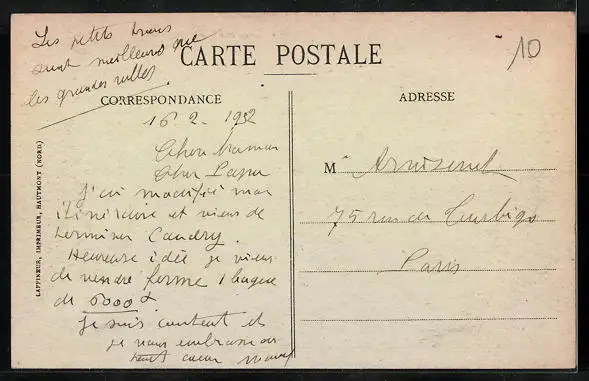 Les petits trous
sont meilleurs que
les grandes villes.
CARTE POSTALE
10
CORRESPONDANCE
ADRESSE
LAFFINEUR, IMPRIMEUR, HAUTMONT (NORD)
16 2. 192
Chère maman
Cher Papa
J'ai modifié mon
itinéraire et viens de
terminer Caudry.
Heureuse idée je viens
de vendre ferme 1 bague
de 6000 f.
je suis content et
je vous embrasse de
tout cœur
M
75 rue de Turbigo
Paris